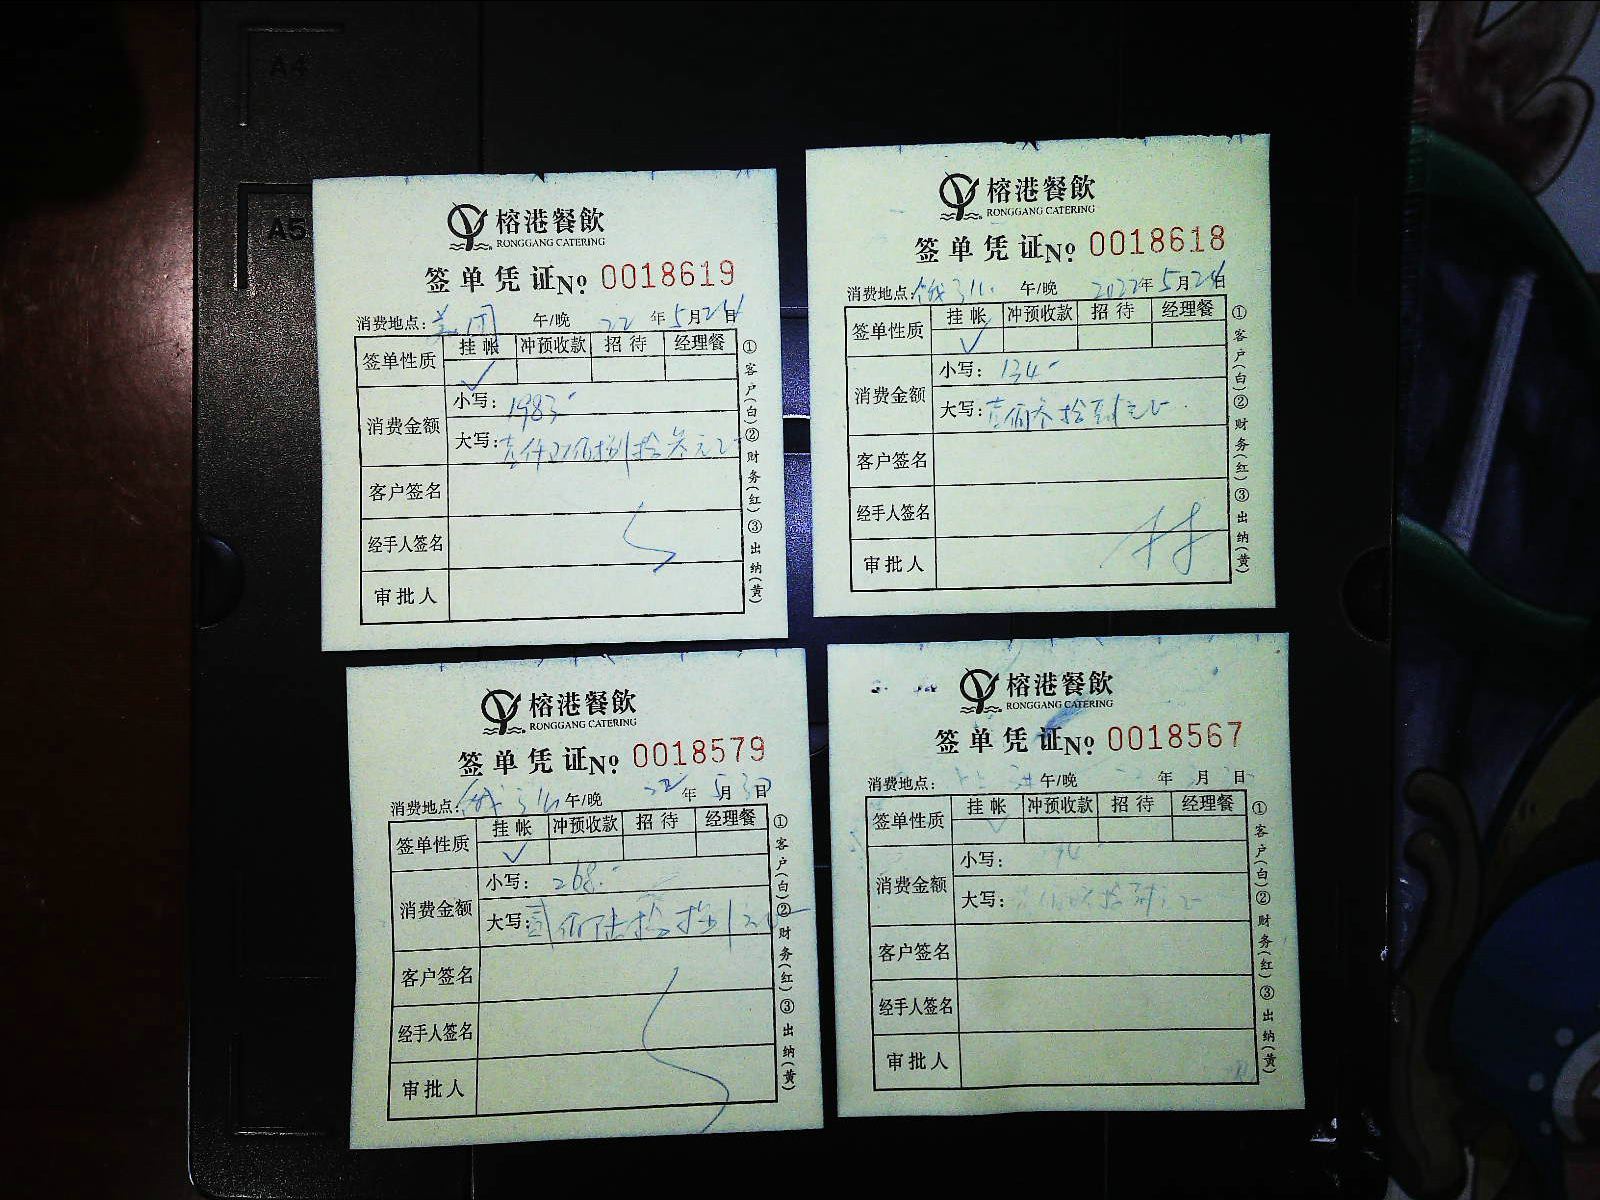 A4
A5
榕港餐飲
RONGGANG CATERING
签单凭证No 0018619
消费地点：美团 午/晚 22年5月24日
签单性质 挂帐 冲预收款 招待 经理餐
✓
消费金额 小写：1983-
大写：壹仟玖佰捌拾叁元正
客户签名
经手人签名
审批人
①客户(白)②财务(红)③出纳(黄)
榕港餐飲
RONGGANG CATERING
签单凭证No 0018618
消费地点： 午/晚 2022年5月24日
签单性质 挂帐 冲预收款 招待 经理餐
✓
消费金额 小写：134-
大写：壹佰叁拾肆元正
客户签名
经手人签名
审批人
①客户(白)②财务(红)③出纳(黄)
榕港餐飲
RONGGANG CATERING
签单凭证No 0018579
消费地点： 午/晚 22年5月3日
签单性质 挂帐 冲预收款 招待 经理餐
✓
消费金额 小写：268.-
大写：贰佰陆拾捌元正
客户签名
经手人签名
审批人
①客户(白)②财务(红)③出纳(黄)
榕港餐飲
RONGGANG CATERING
签单凭证No 0018567
消费地点： 午/晚 年 月 日
签单性质 挂帐 冲预收款 招待 经理餐
✓
消费金额 小写：
大写：
客户签名
经手人签名
审批人
①客户(白)②财务(红)③出纳(黄)